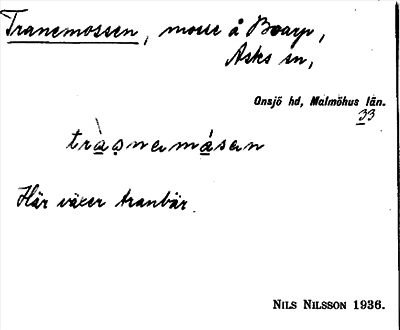 Tranemossen, mosse å Boarp,
Asks sn,
Onsjö hd, Malmöhus län.
33
Här växer tranbär.
NILS NILSSON 1936.